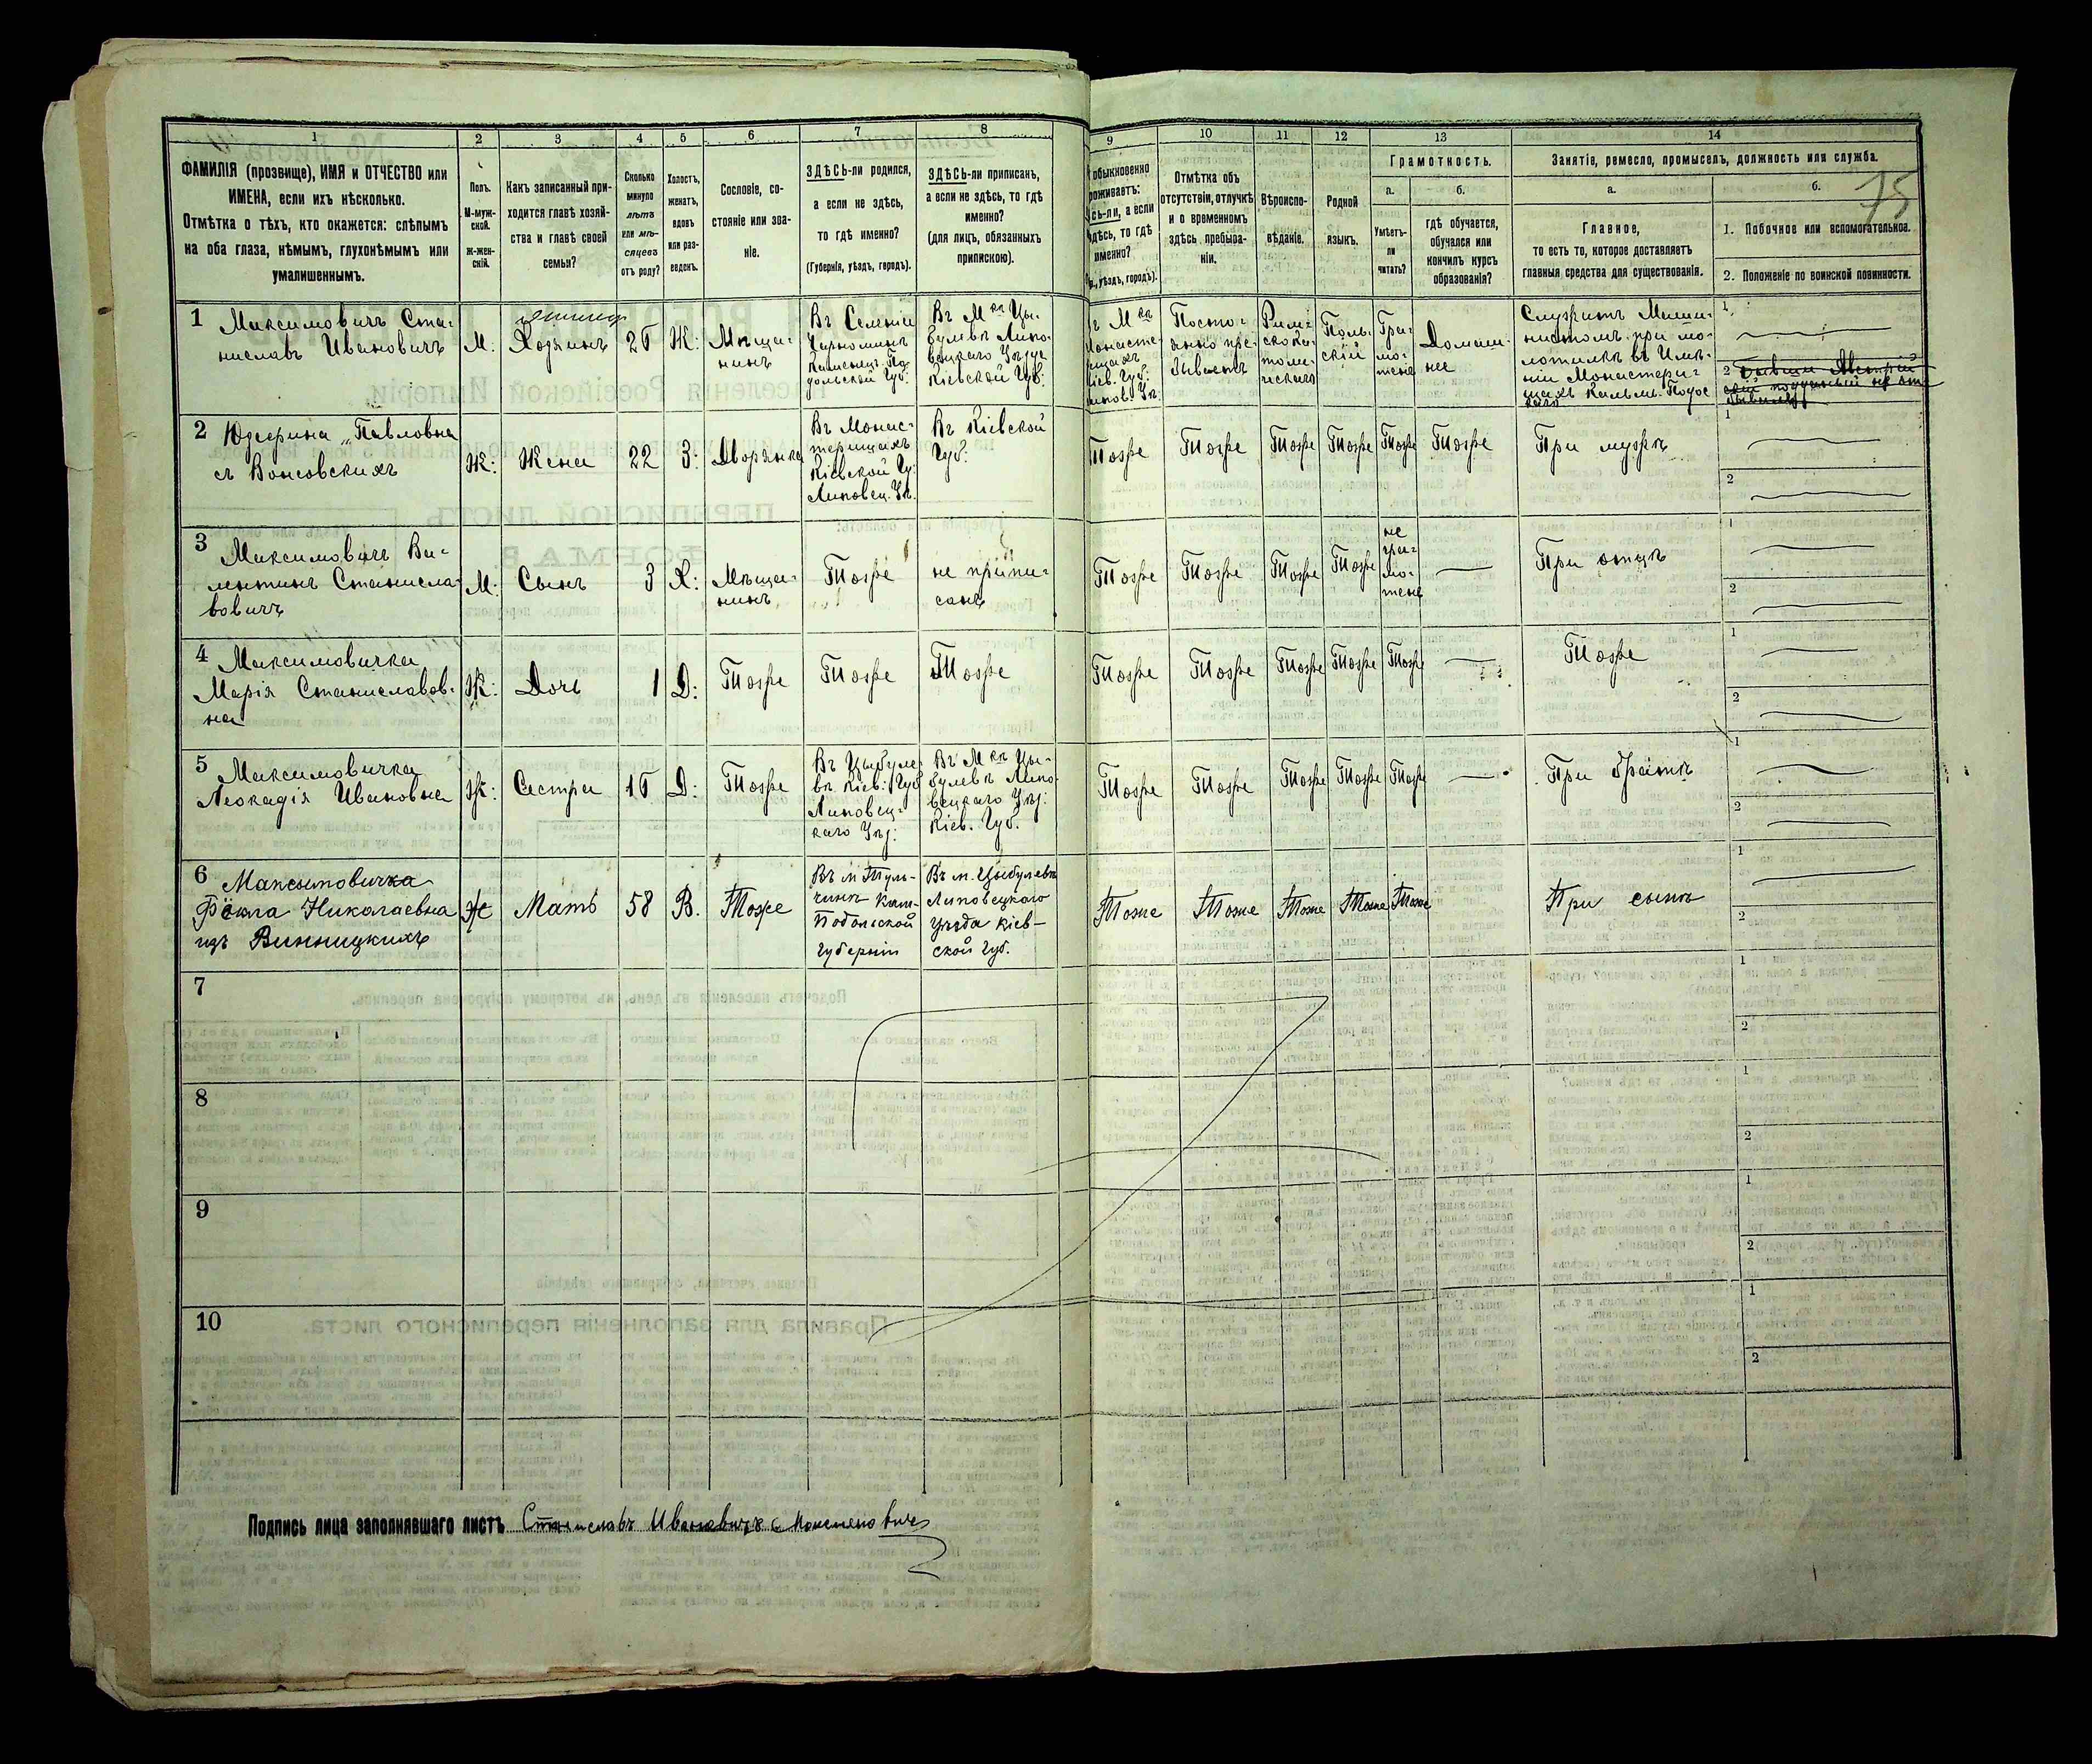 1 2 3 4 5 6 7 8 9 10 11 12 13 14
ФАМИЛІЯ (прозвище), ИМЯ и ОТЧЕСТВО или
ИМЕНА, если ихъ нѣсколько.
Отмѣтка о тѣхъ, кто окажется: слѣпымъ
на оба глаза, нѣмымъ, глухонѣмымъ или
умалишеннымъ.
Полъ.
М-муж-
ской.
ж-жен-
скій.
Какъ записанный при-
ходится главѣ хозяй-
ства и главѣ своей
семьи?
Сколько
минуло
лѣтъ
или мѣ-
сяцевъ
отъ роду?
Холостъ,
женатъ,
вдовъ
или раз-
веденъ.
Сословіе, со-
стояніе или зва-
ніе.
ЗДѢСЬ-ли родился,
а если не здѣсь,
то гдѣ именно?
(Губернія, уѣздъ, городъ).
ЗДѢСЬ-ли приписанъ,
а если не здѣсь, то гдѣ
именно?
(для лицъ, обязанныхъ
припискою).
обыкновенно
роживаетъ:
сь-ли, а если
здѣсь, то гдѣ
именно?
уѣздъ, городъ).
Отмѣтка объ
отсутствіи, отлучкѣ
и о временномъ
здѣсь пребыва-
ніи.
Вѣроиспо-
вѣданіе.
Родной
языкъ.
Грамотность.
а. б.
Умѣетъ-
ли
читать?
гдѣ обучается,
обучался или
кончилъ курсъ
образованія?
Занятіе, ремесло, промыселъ, должность или служба.
а. б.
75
Главное,
то есть то, которое доставляетъ
главныя средства для существованія.
1. Побочное или вспомогательное.
2. Положеніе по воинской повинности.
1
Максимовичъ Ста-
ниславъ Ивановичъ
М:
Хозяинъ
26
Ж:
Мѣща-
нинъ
Въ Селеніи
Чарноминъ
Каменец. По-
дольской Губ:
Въ М кѣ Цы-
булевѣ Липо-
вецкаго Уѣзда
Кіевской Губ:
Въ М кѣ
Монасте-
рищахъ
Кіев. Губ.
Липов. Уѣ
Посто-
янно пре-
бываетъ
Рим-
ско ка-
толи-
ческаго
Поль-
скій
Гра-
мо-
тенъ
Домаш-
не
Служитъ Маши-
нистомъ при мо-
лотилкѣ въ Имѣ-
ніи Монастери-
щахъ
1
2
2
Юзефина Павловна
съ Вонсовскихъ
Ж:
Жена
22
З:
Дворянка
Въ Монас-
терищахъ
Кіевской Гу:
Липовец. Уѣ.
Въ Кіевской
Губ:
Тоже Тоже Тоже Тоже Тоже Тоже
При мужѣ
1
2
3
Максимовичъ Ва-
лентинъ Станисла-
вовичъ
М:
Сынъ
3
Х:
Мѣща-
нинъ
Тоже
не припи-
санъ
Тоже Тоже Тоже Тоже
не
гра-
мо-
тенъ
При отцѣ
1
2
4
Максимовичка
Марія Станиславов-
на
Ж:
Дочь
1
Д:
Тоже Тоже Тоже Тоже Тоже Тоже Тоже Тоже
Тоже
1
2
5
Максимовичка
Леокадія Ивановна
Ж:
Сестра
16
Д:
Тоже
Въ Цыбуле-
вѣ Кіев: Губ
Липовец-
каго Уѣз:
Въ М кѣ Цы-
булевѣ Липо-
вецкаго Уѣз:
Кіев. Губ.
Тоже Тоже Тоже Тоже Тоже
При братѣ
1
2
6
Максимовичка
Фёкла Николаевна
изъ Винницкихъ
Ж
Мать
58
В.
Тоже
Въ м Туль-
чинѣ Кам-
Подольской
губерніи
Въ м. Цыбулевѣ
Липовецкаго
уѣзда Кіев-
ской Губ.
Тоже Тоже Тоже Тоже Тоже
При сынѣ
1
2
7
1
2
8
1
2
9
1
2
10
1
2
Подпись лица заполнявшаго листъ Станиславъ Ивановичъ Максимовичъ